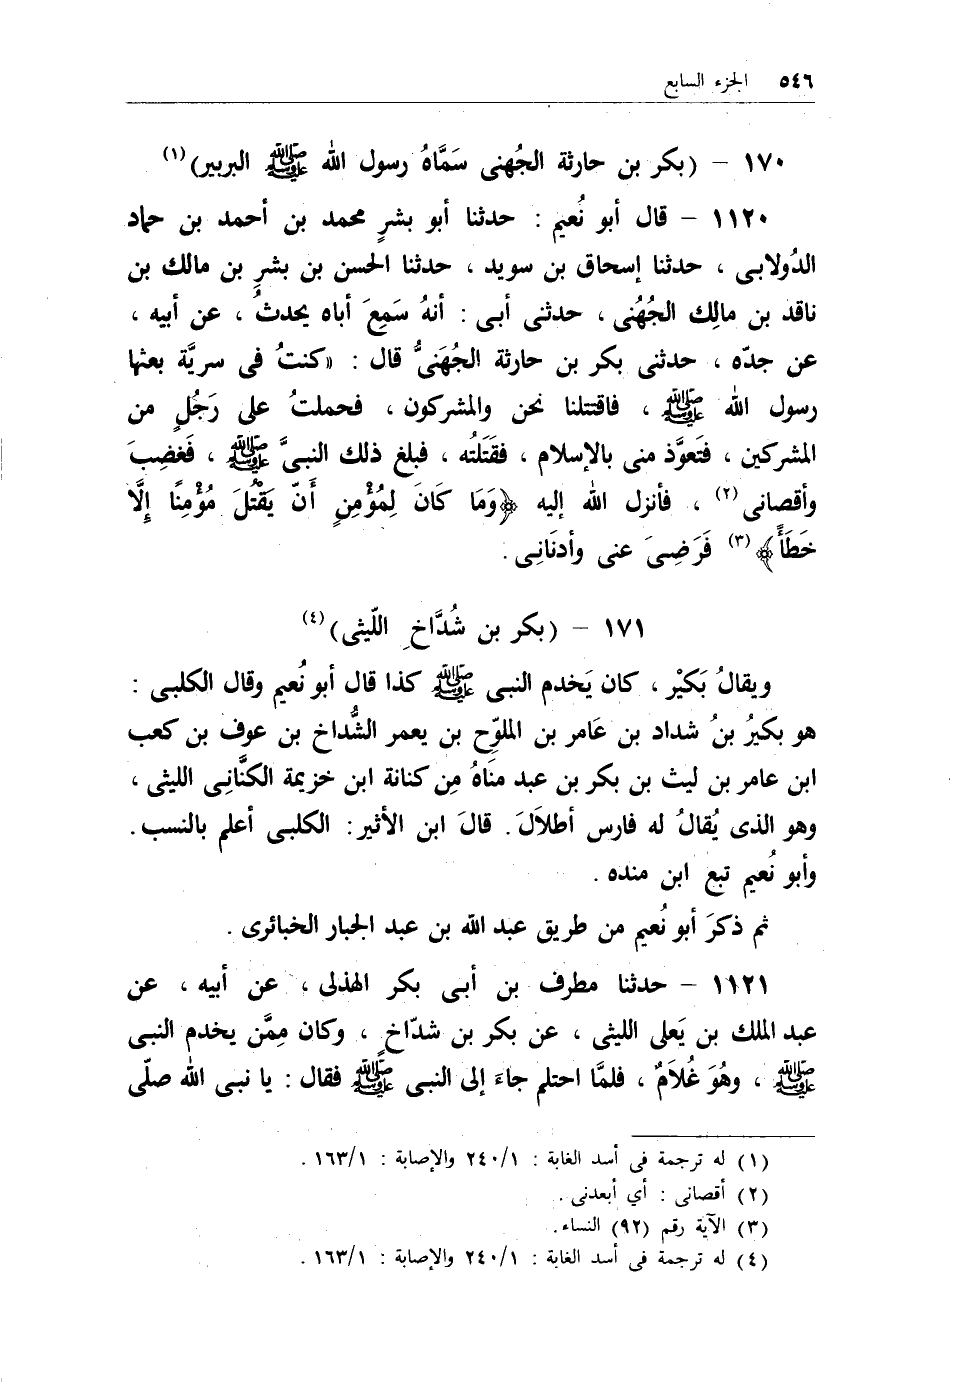 ٥٤٦ الجزء السابع
١٧٠ - (بكر بن حارثة الجُهنى سَمَّاهُ رسول الله ﷺ البربير)(١)
١١٢٠ - قال أبو نُعيم : حدثنا أبو بشرٍ محمد بن أحمد بن حماد
الدُولابى ، حدثنا إسحاق بن سويد ، حدثنا الحسن بن بشرِ بن مالك بن
ناقد بن مالِك الجُهُنى ، حدثنى أبى : أنهُ سَمِعَ أباه يحدثُ ، عن أبيه ،
عن جدّه ، حدثنى بكر بن حارثة الجُهَنىُّ قال : «كنتُ فى سريَّة بعثها
رسول الله ﷺ ، فاقتتلنا نحن والمشركون ، فحملتُ على رَجُلٍ من
المشركين ، فتَعوَّذ منى بالإسلام ، فقَتَلتُه ، فبلغ ذلك النبىَّ ﷺ ، فَغضِبَ
وأقصانى(٢) ، فأنزل الله إليه ﴿وَمَا كَانَ لِمُؤْمِنٍ أَنّ يَقْتُلَ مُؤْمِنًا إِلَّا
خَطَأً﴾(٣) فَرَضِىَ عنى وأدنَانِى .
١٧١ - (بكر بن شُدَّاخِ اللّيثى)(٤)
ويقالُ بَكَيْر ، كان يَخدم النبى ﷺ كذا قال أبو نُعيم وقال الكلبى :
هو بكيرُ بنُ شداد بن عَامر بن الملوِّح بن يعمر الشُّداخ بن عوف بن كعب
ابن عامر بن ليث بن بكر بن عبد منَاهُ مِن كنانة ابن خزيمة الكنَّانِى الليثى ،
وهو الذى يُقالُ له فارس أطلاَلَ. قالَ ابن الأثير: الكلبى أعلم بالنسب.
وأبو نُعيم تبع ابن منده .
ثم ذكرَ أبو نُعيم من طريق عبد الله بن عبد الجبار الخبائرى .
١١٢١ - حدثنا مطرف بن أبى بكر الهذلى ، عن أبيه ، عن
عبد الملك بن يَعلى الليثى ، عن بكر بن شدّاخٍ ، وكان مِمَّن يخدم النبى
ﷺ ، وهُوَ غُلاَمٌ ، فلمَّا احتلم جاءَ إلى النبى ﷺ فقال : يا نبى الله صلّى
(١) له ترجمة فى أسد الغابة : ٢٤٠/١ والإصابة : ١٦٣/١ .
(٢) أقصانى : أي أبعدنى .
(٣) الآية رقم (٩٢) النساء.
(٤) له ترجمة فى أسد الغابة : ٢٤٠/١ والإصابة : ١٦٣/١ .